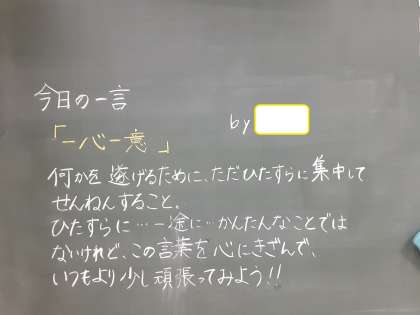 今日の一言
by
「一心一意」
何かを遂げるために、ただひたすらに集中して
せんねんすること。
ひたすらに…一途に…かんたんなことでは
ないけれど、この言葉を心にきざんで、
いつもより少し頑張ってみよう!!